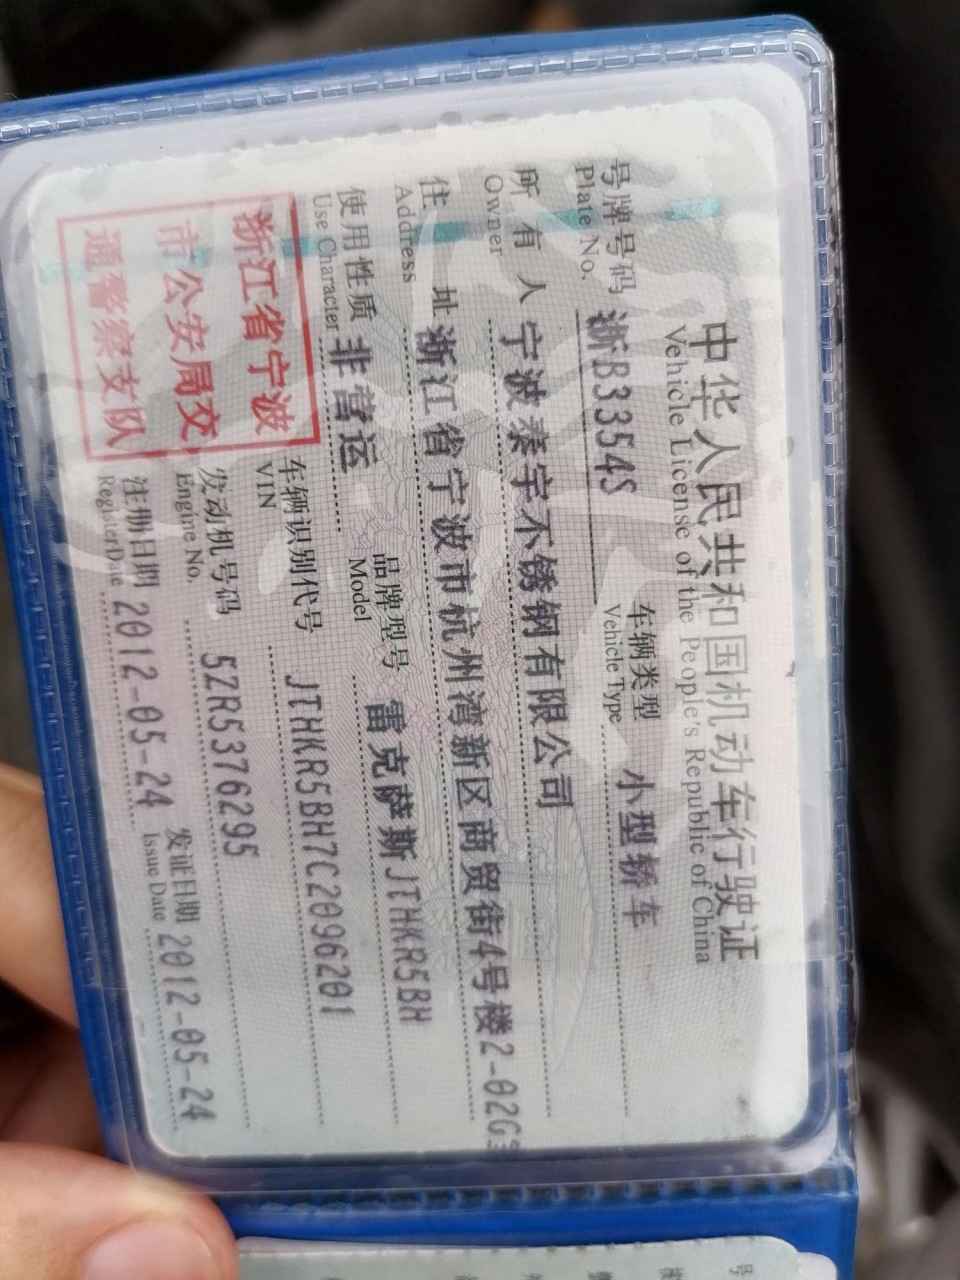 中华人民共和国机动车行驶证
Vehicle License of the People's Republic of China
号牌号码 浙B3354S 车辆类型 小型轿车
Plate No. Vehicle Type
所有人 宁波秦宇不锈钢有限公司
Owner
住址 浙江省宁波市杭州湾新区商贸街4号楼2-02G
Address
使用性质 非营运 品牌型号 雷克萨斯JTHKR5BH
Use Character Model
浙江省宁波
市公安局交
通警察支队
车辆识别代号 JTHKR5BH7C2096201
VIN
发动机号码 5ZR5376295
Engine No.
注册日期 2012-05-24 发证日期 2012-05-24
Register Date Issue Date
号